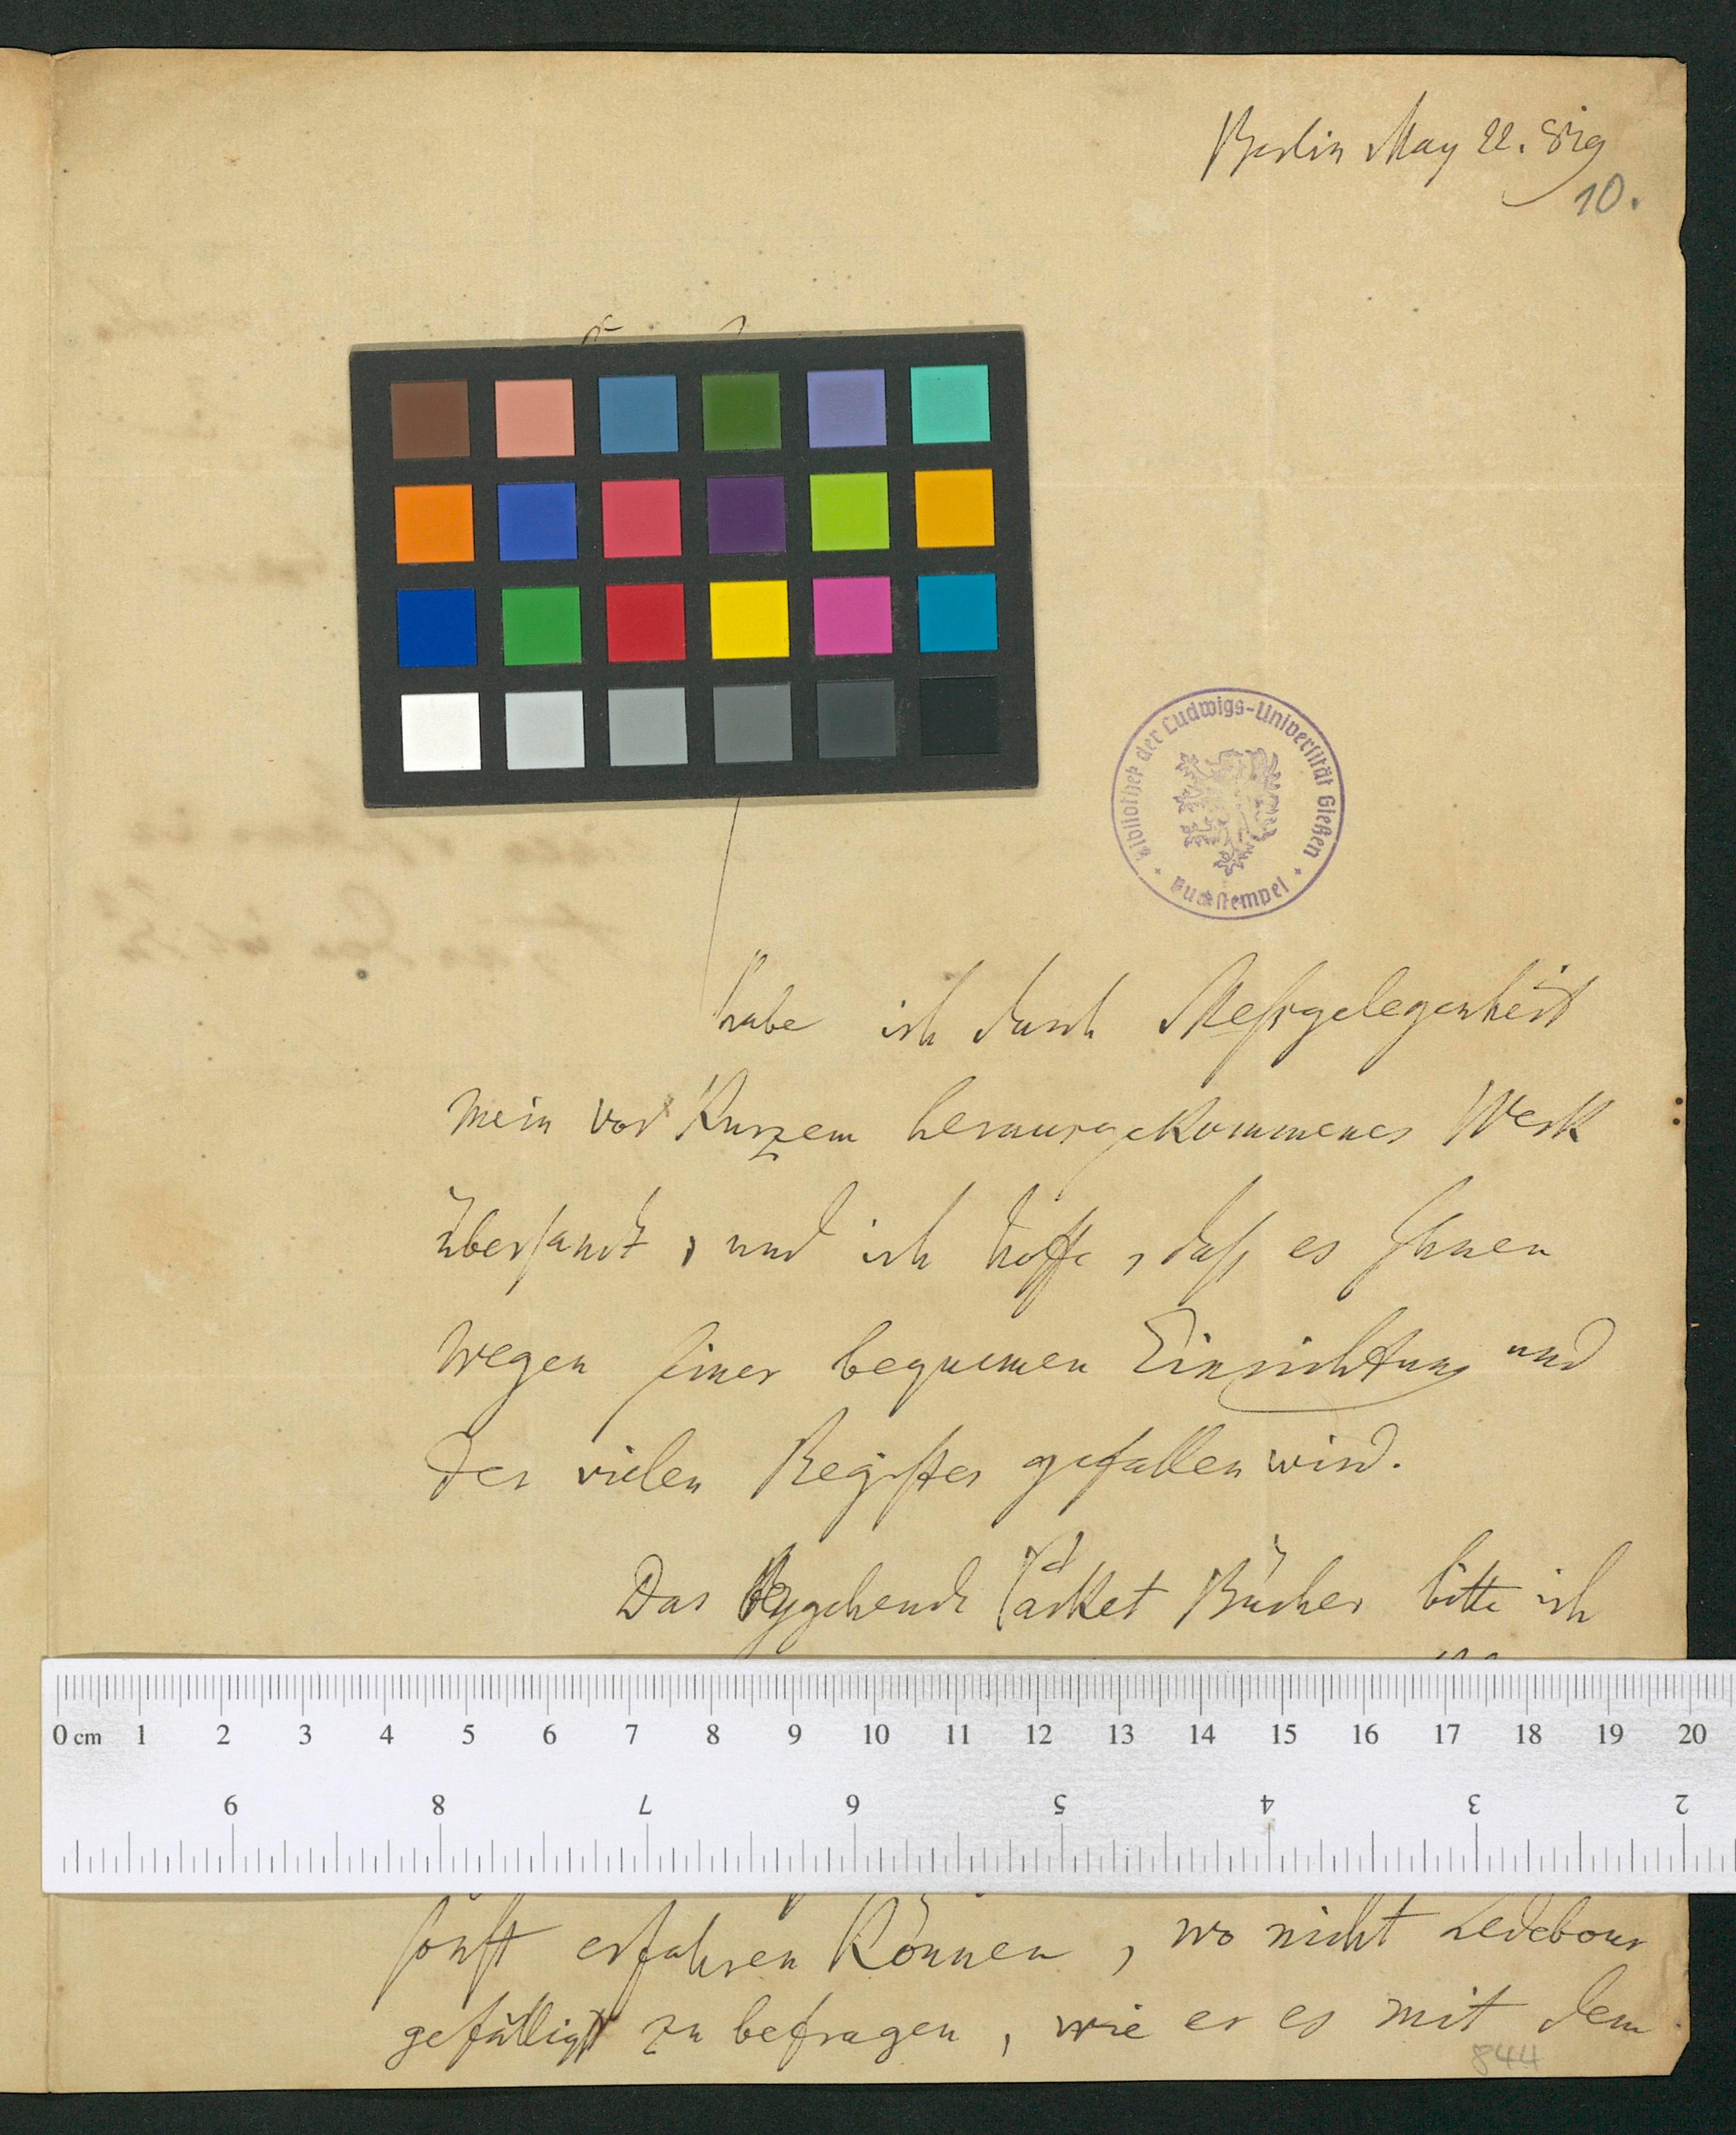 Berlin May 22. 819
10.
Bibliothek der Ludwigs-Universität Gießen
Buchstempel
habe ich durch Meßgelegenheit
mein vor Kurzem herausgekommenes Werk
übersandt, und ich hoffe, daß es Ihnen
wegen seiner bequemen Einrichtung und
der vielen Register gefallen wird.
Das beygehende Packet Bücher bitte ich
0 cm 1 2 3 4 5 6 7 8 9 10 11 12 13 14 15 16 17 18 19 20
9 8 7 6 5 4 3 2
sonst erfahren können, wo nicht Ledebour
gefälligst zu befragen, wie er es mit dem
844